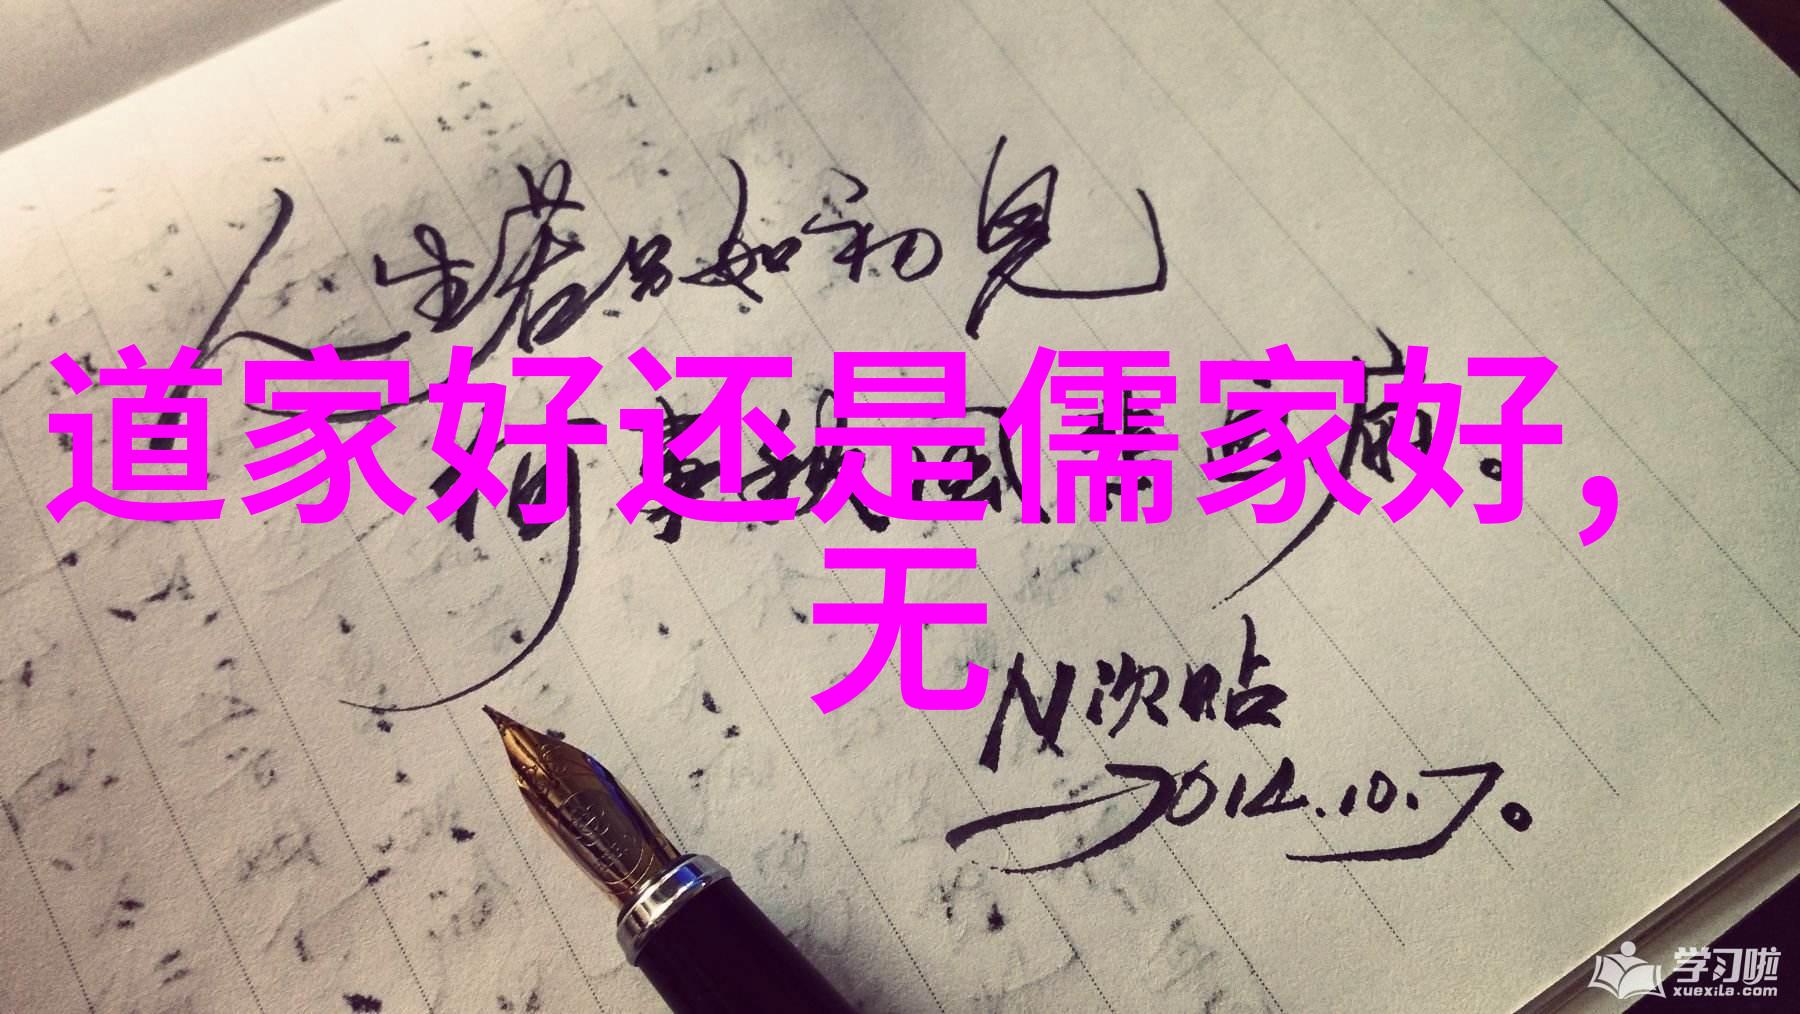 人生若只如初见
道家好还是儒家好，
何事秋风悲画扇。
无
N次贴
2014.10.7。
学习啦
xuexila.com